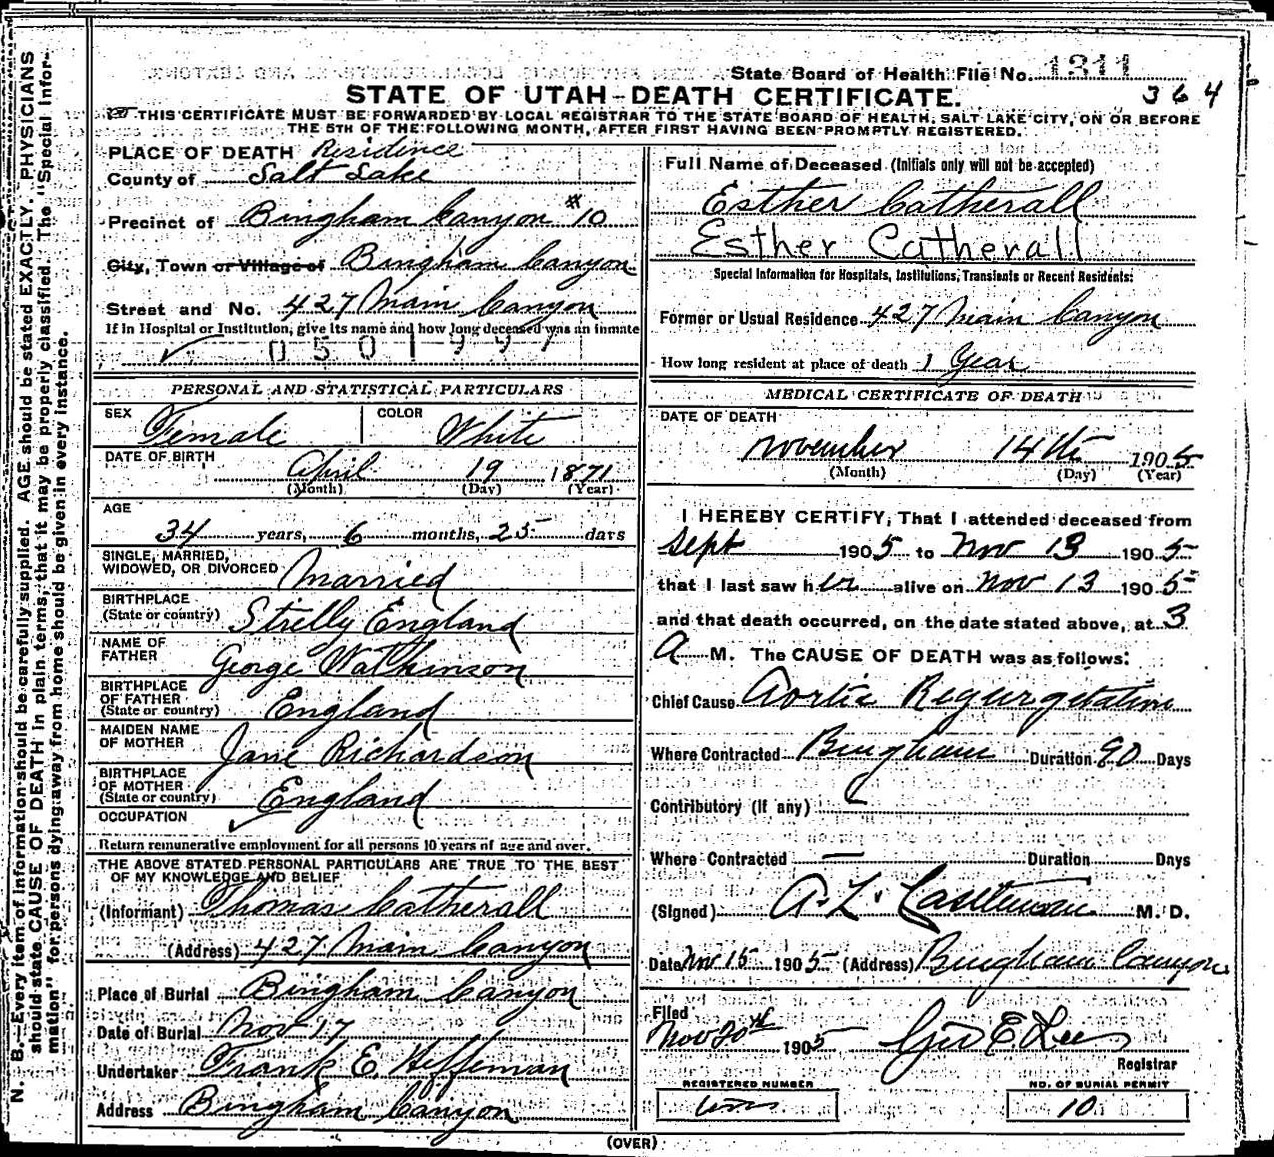 State Board of Health File No. 1311
364
STATE OF UTAH—DEATH CERTIFICATE.
THIS CERTIFICATE MUST BE FORWARDED BY LOCAL REGISTRAR TO THE STATE BOARD OF HEALTH, SALT LAKE CITY, ON OR BEFORE
THE 5TH OF THE FOLLOWING MONTH, AFTER FIRST HAVING BEEN PROMPTLY REGISTERED.
N. B.—Every item of information should be carefully supplied. AGE should be stated EXACTLY. PHYSICIANS
should state CAUSE OF DEATH in plain terms, that it may be properly classified. The "Special Infor-
mation" for persons dying away from home should be given in every instance.
PLACE OF DEATH Residence
County of Salt Lake
Precinct of Bingham Canyon #10
City, Town or Village of Bingham Canyon
Street and No. 427 Main Canyon
If in Hospital or Institution, give its name and how long deceased was an inmate
✓ 0501997
PERSONAL AND STATISTICAL PARTICULARS
SEX Female COLOR White
DATE OF BIRTH April 19 1871
(Month) (Day) (Year)
AGE
34 years, 6 months, 25 days
SINGLE, MARRIED,
WIDOWED, OR DIVORCED Married
BIRTHPLACE
(State or country) Strelly England
NAME OF
FATHER George Watkinson
BIRTHPLACE
OF FATHER
(State or country) England
MAIDEN NAME
OF MOTHER Jane Richardson
BIRTHPLACE
OF MOTHER
(State or country) England
OCCUPATION ✓
Return remunerative employment for all persons 10 years of age and over.
THE ABOVE STATED PERSONAL PARTICULARS ARE TRUE TO THE BEST
OF MY KNOWLEDGE AND BELIEF
(Informant) Thomas Catherall
(Address) 427 Main Canyon
Place of Burial Bingham Canyon
Date of Burial Nov 17
Undertaker Frank E. Heffernan
Address Bingham Canyon
Full Name of Deceased (Initials only will not be accepted)
Esther Catherall
Esther Catherall
Special Information for Hospitals, Institutions, Transients or Recent Residents:
Former or Usual Residence 427 Main Canyon
How long resident at place of death 1 Year
MEDICAL CERTIFICATE OF DEATH
DATE OF DEATH
November 14th 1905
(Month) (Day) (Year)
I HEREBY CERTIFY, That I attended deceased from
Sept 1905 to Nov 13 1905
that I last saw her alive on Nov 13 1905
and that death occurred, on the date stated above, at 3
A M. The CAUSE OF DEATH was as follows:
Chief Cause Aortic Regurgitation
Where Contracted Bingham Duration 90 Days
Contributory (if any)
Where Contracted — Duration Days
(Signed) A. L. Castleman M. D.
Date Nov 15 1905 (Address) Bingham Canyon
Filed
Nov 20th 1905 Geo E Lee
Registrar
REGISTERED NUMBER
NO. OF BURIAL PERMIT
10
(OVER)